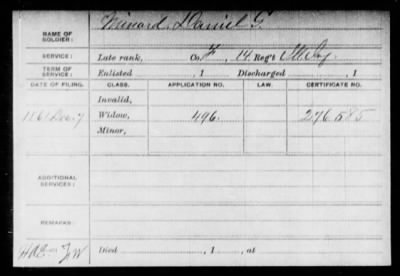 NAME OF SOLDIER: Minard, Daniel G.
SERVICE: Late rank, Co. F, 14 Reg't
TERM OF SERVICE: Enlisted , 1 Discharged , 1
DATE OF FILING. CLASS. APPLICATION NO. LAW. CERTIFICATE NO.
Invalid,
Widow, 496. 276.585
Minor,
ADDITIONAL SERVICES:
REMARKS:
Died , 1 , at